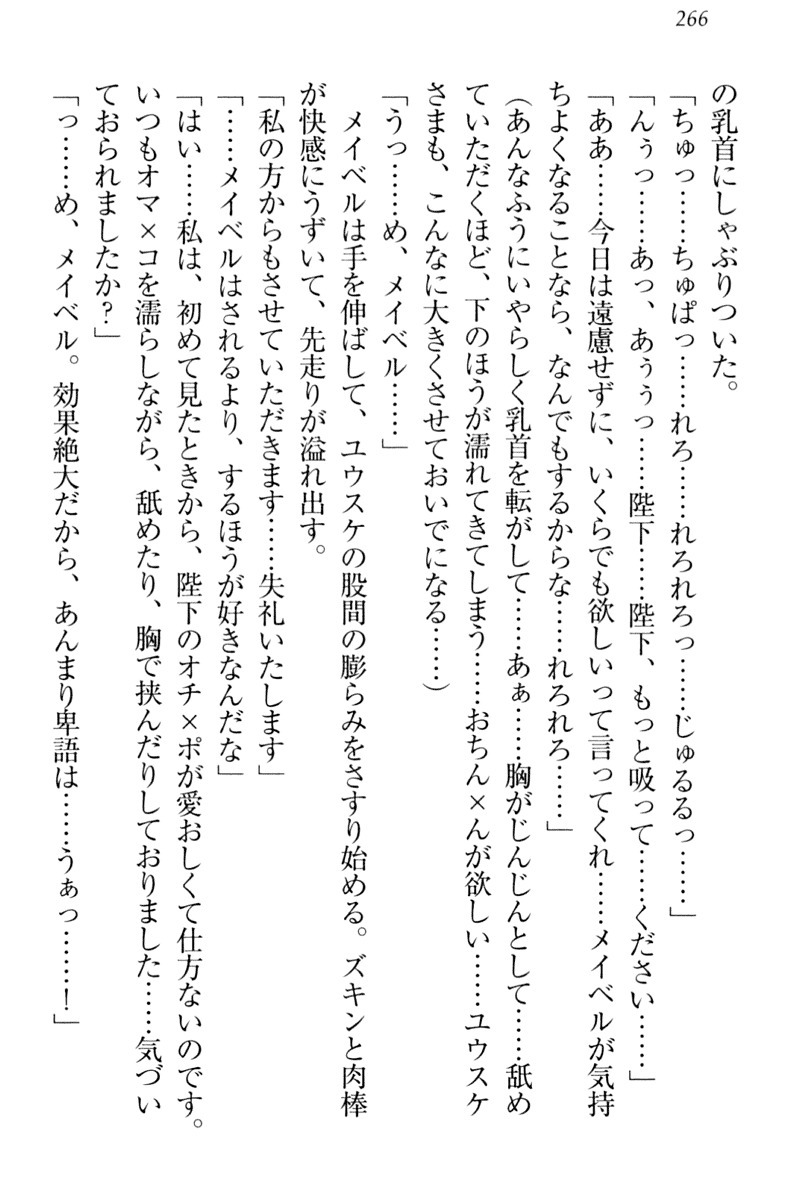 266
の乳首にしゃぶりついた。
「ちゅっ……ちゅぱっ……れろ……れろれろっ……じゅるるっ……」
「んぅっ……あっ、あぅぅっ……陛下……陛下、もっと吸って……ください……」
「ああ……今日は遠慮せずに、いくらでも欲しいって言ってくれ……メイベルが気持
ちよくなることなら、なんでもするからな……れろれろ……」
（あんなふうにいやらしく乳首を転がして……あぁ……胸がじんじんとして……舐め
ていただくほど、下のほうが濡れてきてしまう……おちん×んが欲しい……ユウスケ
さまも、こんなに大きくさせておいでになる……）
「うっ……め、メイベル……」
メイベルは手を伸ばして、ユウスケの股間の膨らみをさすり始める。ズキンと肉棒
が快感にうずいて、先走りが溢れ出す。
「私の方からもさせていただきます……失礼いたします」
「……メイベルはされるより、するほうが好きなんだな」
「はい……私は、初めて見たときから、陛下のオチ×ポが愛おしくて仕方ないのです。
いつもオマ×コを濡らしながら、舐めたり、胸で挟んだりしておりました……気づい
ておられましたか？」
「っ……め、メイベル。効果絶大だから、あんまり卑語は……うぁっ……！」